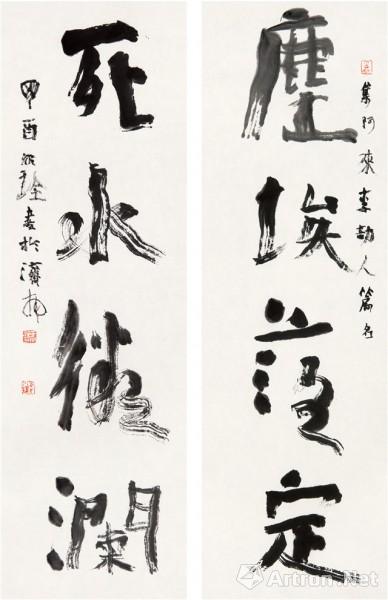 集阿來李劼人篇名
塵埃落定
死水微瀾
酉書於濟南
Artron.Net